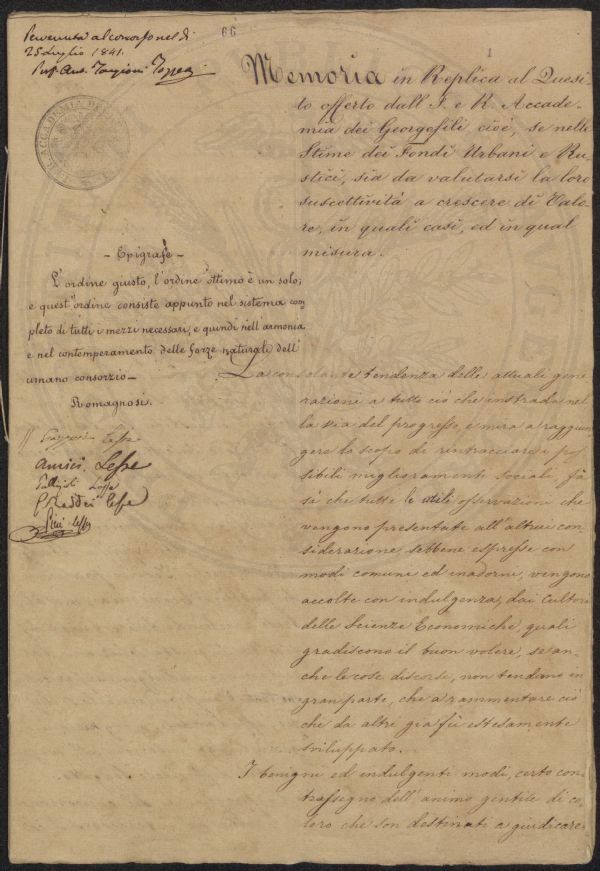 Pervenuta al concorso nel dì
25 Luglio 1841.
Prof. Ant. Targioni Tozzetti
66
1
Memoria in Replica al Quesi-
to offerto dall' I. e R. Accade-
mia dei Georgofili cioè, se nelle
Stime dei Fondi Urbani e Ru-
stici, sia da valutarsi la loro
suscettività a crescere di Valo-
re, in quali casi, ed in qual
misura.
- Epigrafe -
L'ordine giusto, l'ordine ottimo è un solo;
e quest'ordine consiste appunto nel sistema com-
pleto di tutti i mezzi necessari, e quindi nell'armonia
e nel contemperamento delle forze naturali dell'
umano consorzio -
Romagnosi.
Lesse
Amici Lesse
Lesse
Lesse
La consolante tendenza delle attuali gene-
razioni a tutto ciò che instrada nel-
la via del progresso, e mira a raggiun-
gere lo scopo di rintracciare i pos-
sibili miglioramenti sociali, fà
sì che tutte le utili osservazioni che
vengono presentate all'altrui con-
siderazione, sebbene espresse con
modi comuni ed inadorni, vengono
accolte con indulgenza, dai Cultori
delle Scienze Economiche, quali
gradiscono il buon volere, se an-
che le cose discorse, non tendano in
gran parte, che a rammentare ciò
che da altri già fù estesamente
sviluppato.
I benigni ed indulgenti modi, certo con-
trassegno dell'animo gentile di co-
loro che son destinati a giudicare